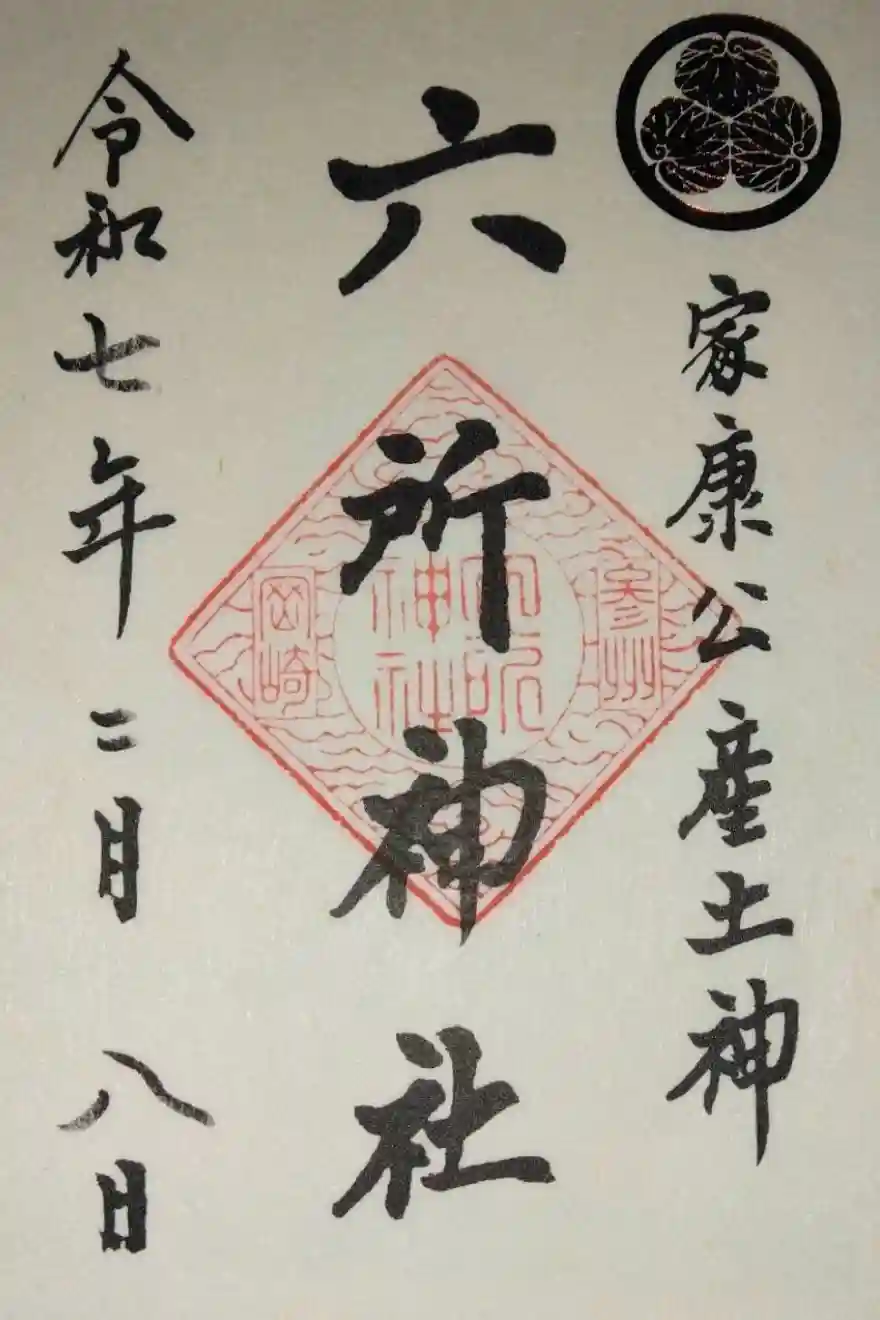 家康公産土神
六所神社
参州
六所神社
岡崎
令和七年二月八日